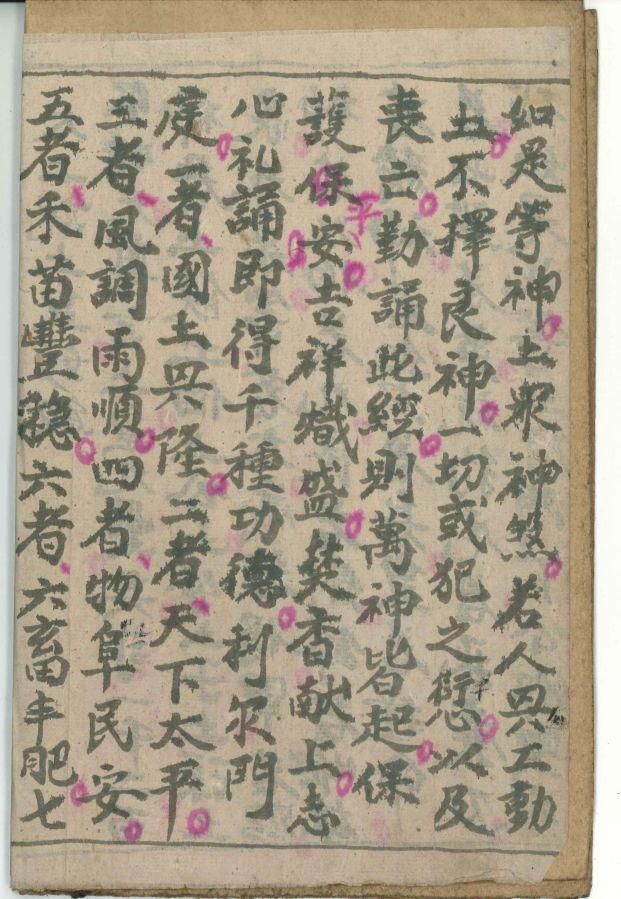 如是等神土眾神煞若人興工動
土不擇良神一切或犯之愆以及
喪亡勤誦此經則萬神皆起保
護保安吉祥熾盛焚香献上志
平
心礼誦即得千種功德利尔門
庭一者國土興隆二者天下太平
三者風調雨順四者物阜民安
五者禾苗豐稳六者六畜丰肥七